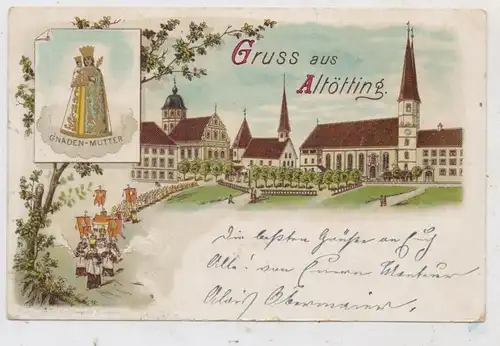 Gruss aus
Altötting.
GNADEN-MUTTER
Die besten Grüße an Euch
Alle! von Eurem Monteur
Alois Obermaier.